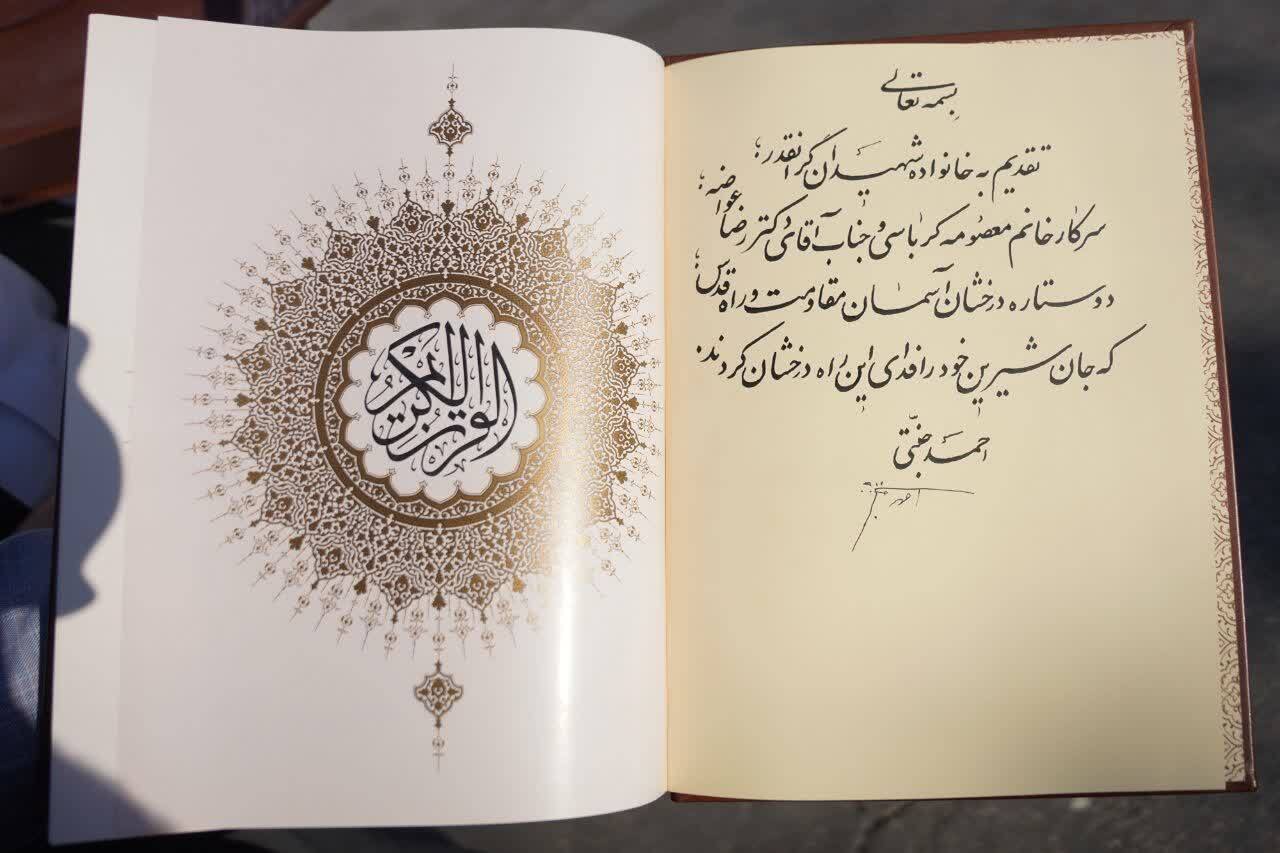 بسمه تعالی
تقدیم به خانواده شهیدان گرانقدر؛
سرکار خانم معصومه کرباسی و جناب آقای دکتر رضا عواضه؛
دو ستاره درخشان آسمان مقاومت و راه قدس؛
که جان شیرین خود را فدای این راه درخشان کردند.
احمد جنتی
القرآن الکریم